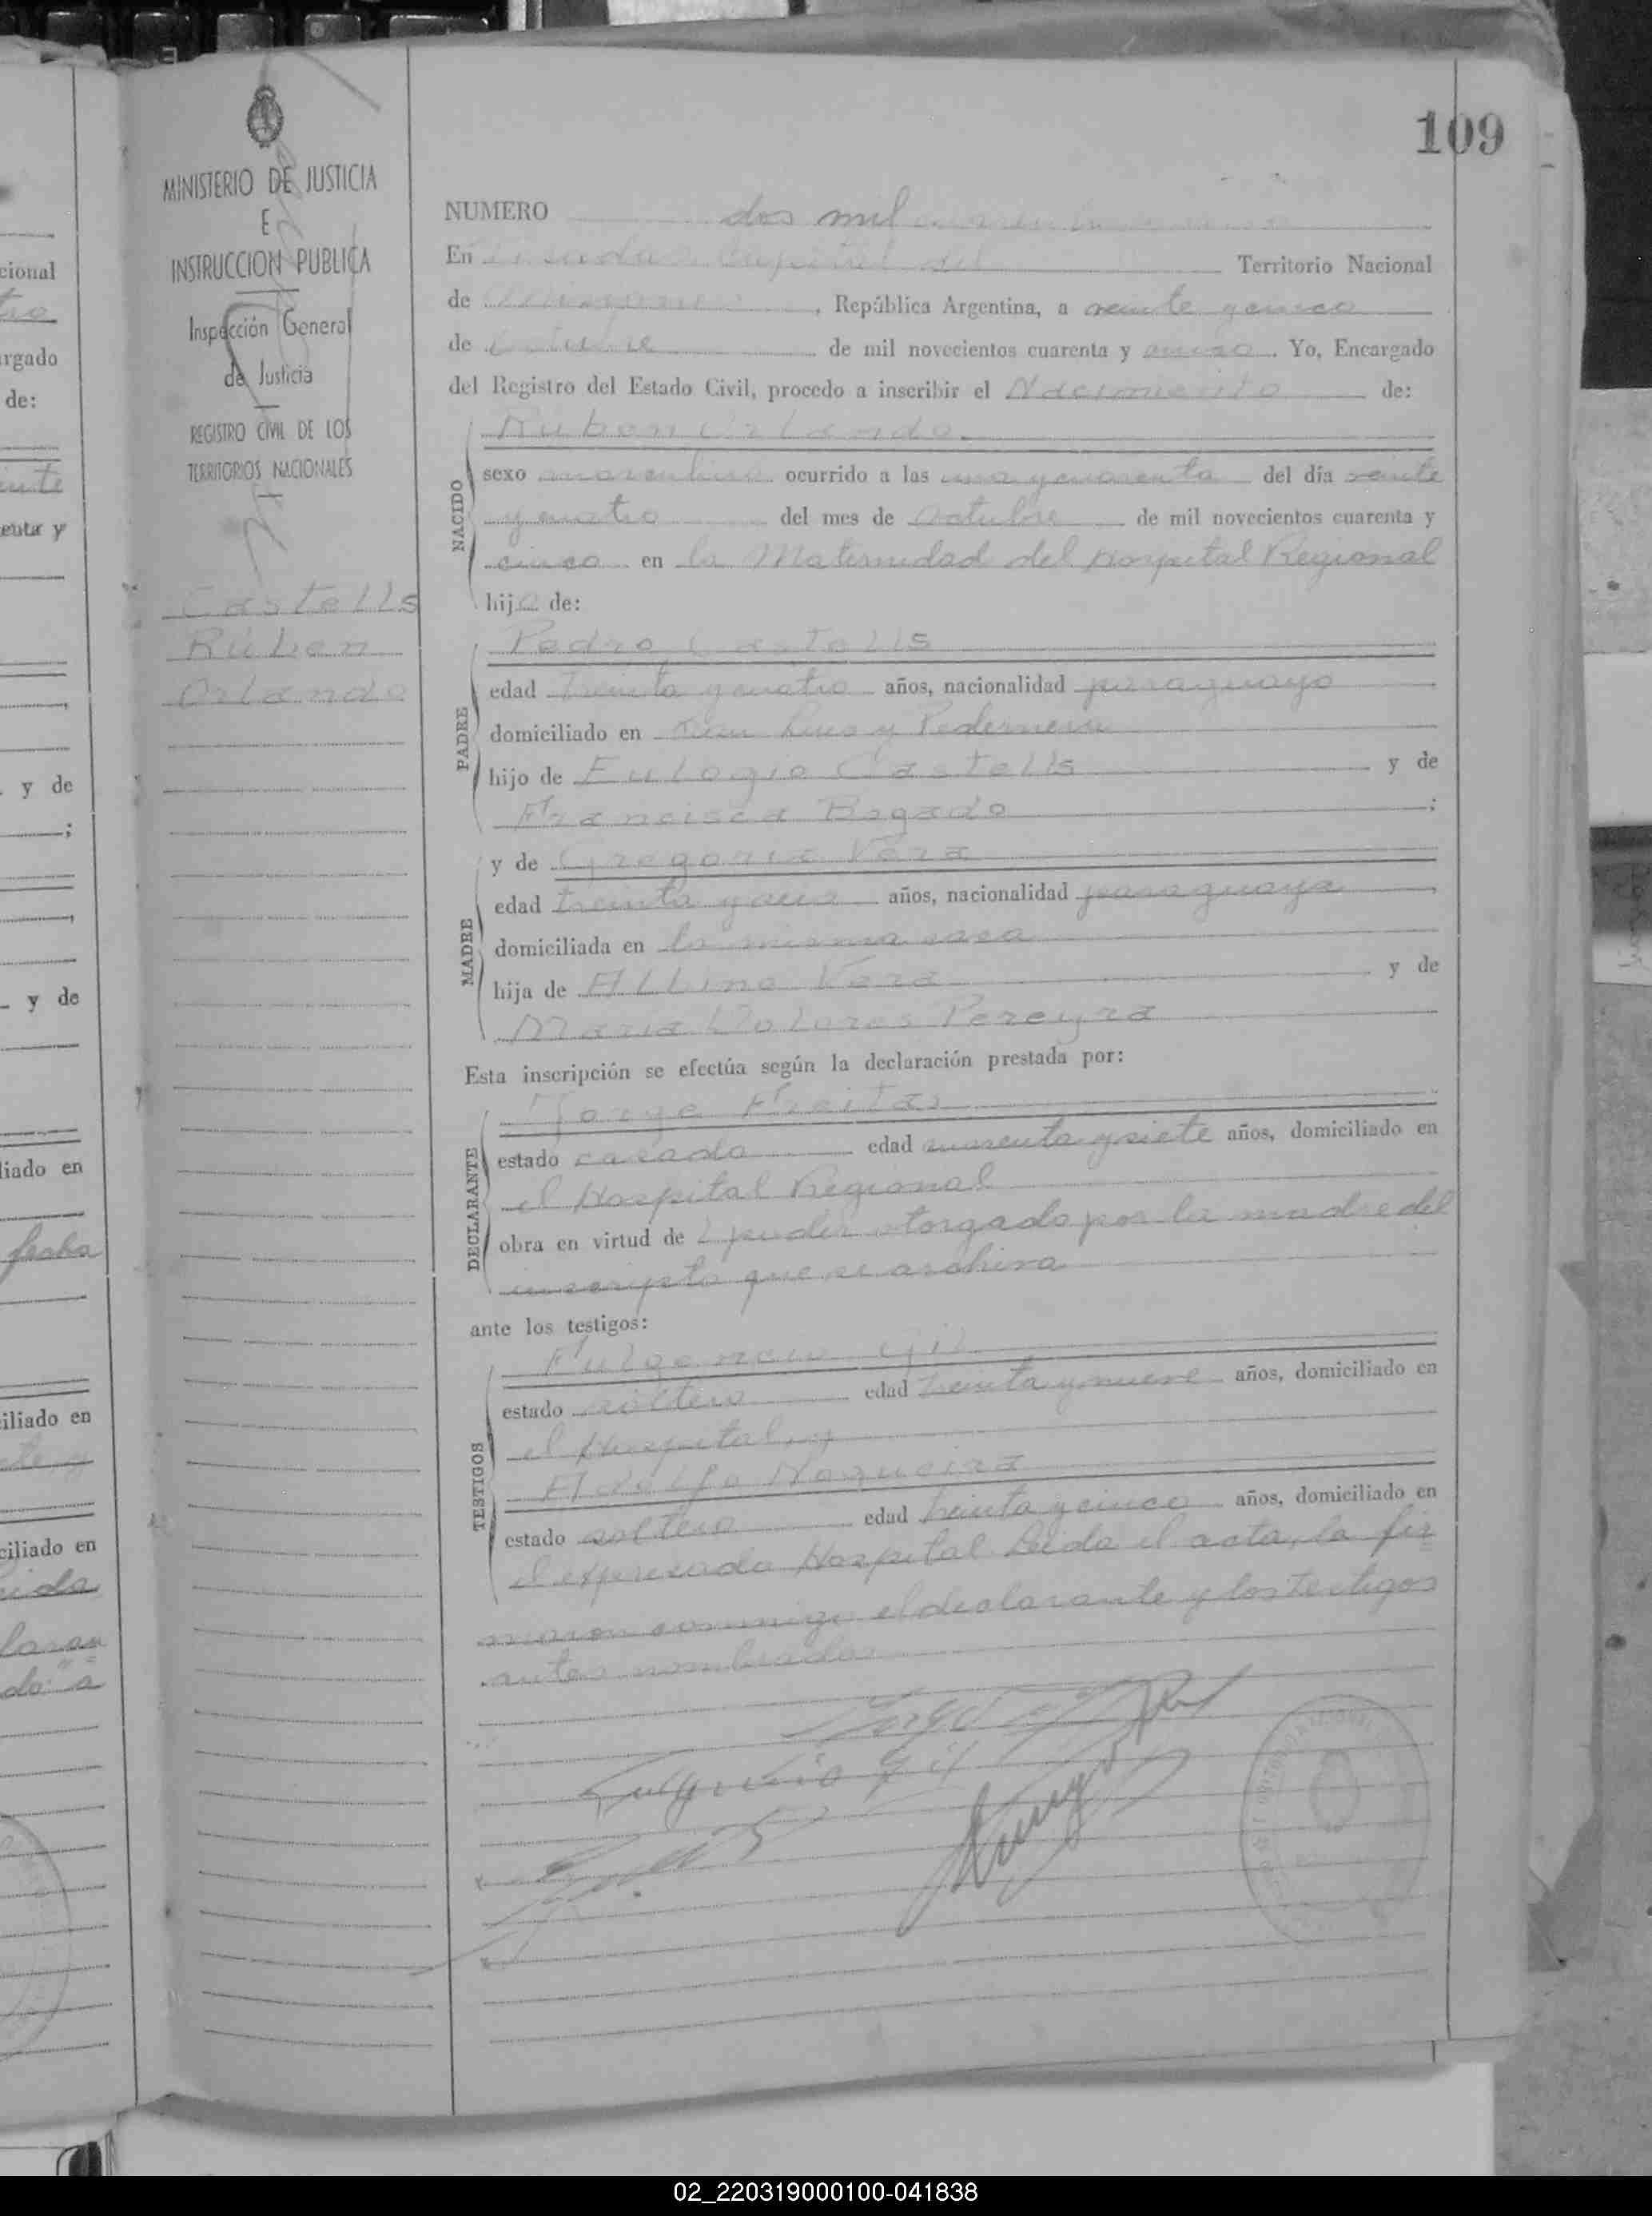 109
MINISTERIO DE JUSTICIA
E
INSTRUCCION PUBLICA
Inspección General
de Justicia
REGISTRO CIVIL DE LOS
TERRITORIOS NACIONALES
Castells
Rúben
Orlando
NUMERO dos mil
En Posadas Capital del Territorio Nacional
de Misiones, República Argentina, a veinte y cinco
de Octubre de mil novecientos cuarenta y cinco. Yo, Encargado
del Registro del Estado Civil, procedo a inscribir el Nacimiento de:
NACIDO
Ruben Orlando
sexo masculino ocurrido a las una y cuarenta del día veinte
y cuatro del mes de Octubre de mil novecientos cuarenta y
cinco en la Maternidad del Hospital Regional
hijo de:
PADRE
Pedro Castells
edad treinta y cuatro años, nacionalidad paraguayo
domiciliado en San Luis y Pedernera
hijo de Eulogio Castells y de
Francisca Bogado;
MADRE
y de Gregoria Vera
edad treinta y años, nacionalidad paraguaya,
domiciliada en la misma casa
hija de Albino Vera y de
Maria Dolores Pereyra
Esta inscripción se efectúa según la declaración prestada por:
DECLARANTE
Jorge Freitas
estado casado edad cuarenta y siete años, domiciliado en
el Hospital Regional
obra en virtud de poder otorgado por la madre del
inscripto que se archiva
ante los testigos:
TESTIGOS
Fulgencio Gil
estado soltero edad treinta y nueve años, domiciliado en
el Hospital, y
Adolfo Nogueira
estado soltero edad treinta y cinco años, domiciliado en
el expresado Hospital. Leida el acta, la fir
maron conmigo el declarante y los testigos
antes nombrados
Fulgencio Gil
cional
argado
de:
y de
;
y de
liado en
fecha
iliado en
ciliado en
02_220319000100-041838